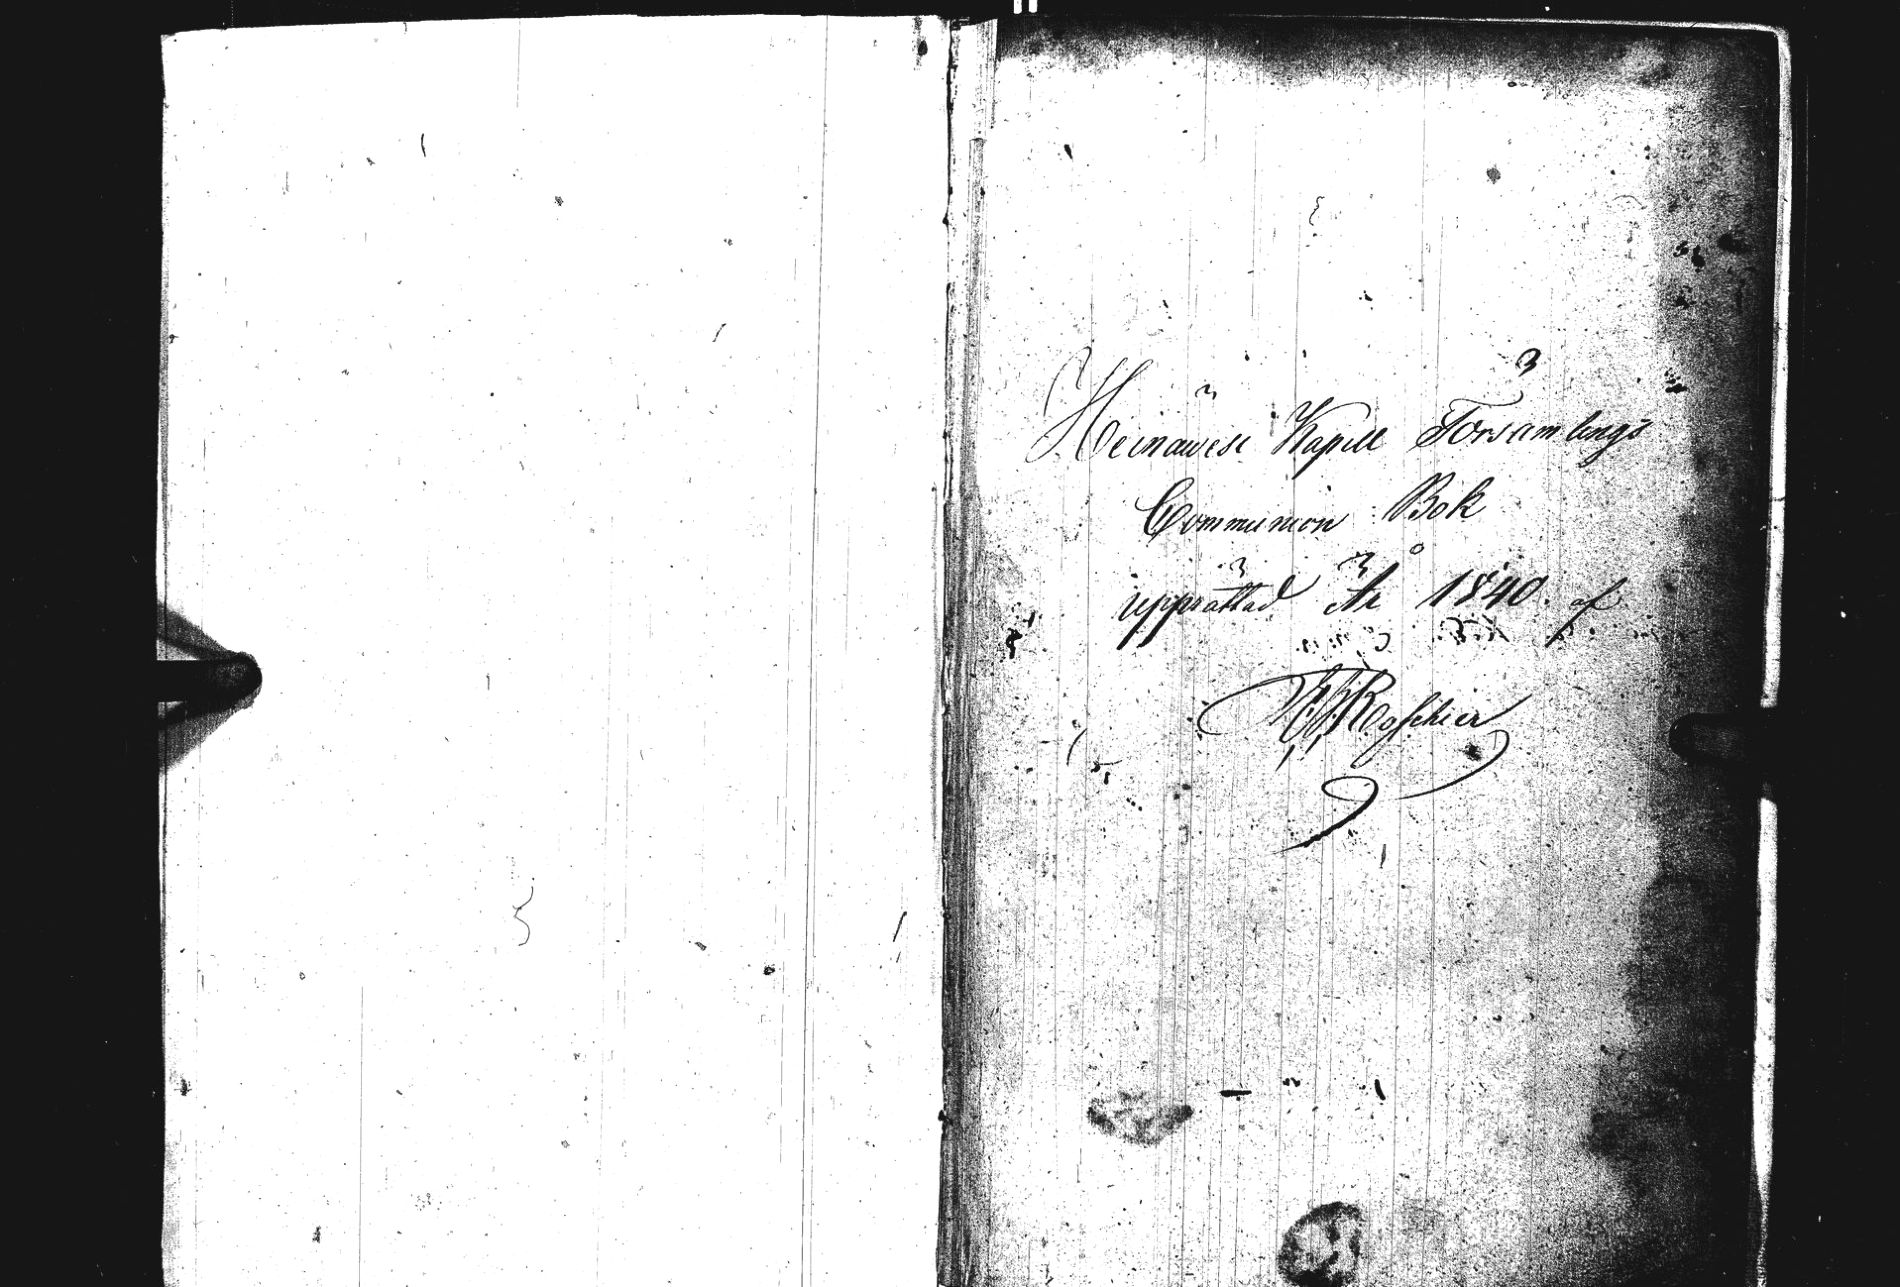 Heinäwesi Kapell Församlings
Communion Bok
upprättad År 1840 af
Roschier